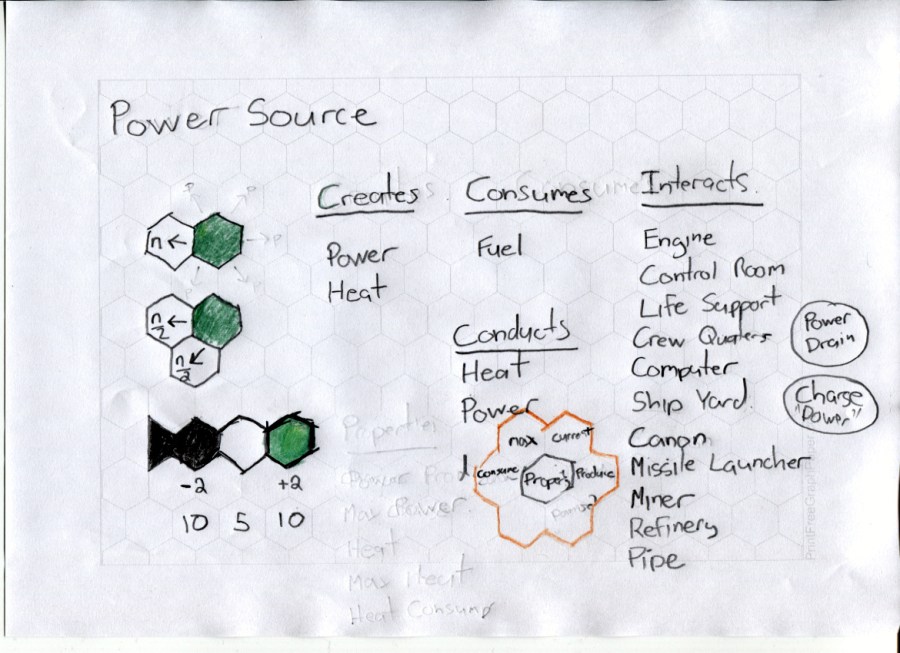 Power Source
Creates
Consumes
Interacts.
Power
Heat
Fuel
Conducts
Heat
Power
Engine
Control Room
Life Support
Crew Quaters
Computer
Ship Yard.
Canon
Missile Launcher
Miner
Refinery
Pipe
Power
Drain
Charge
"Power"
P
P
P
P
n ←
n/2 ←
n/2 ↙
-2 +2
10 5 10
max current
Consume Propert's Produce
Properties
Max Power.
Heat
Max Heat
Heat Consump